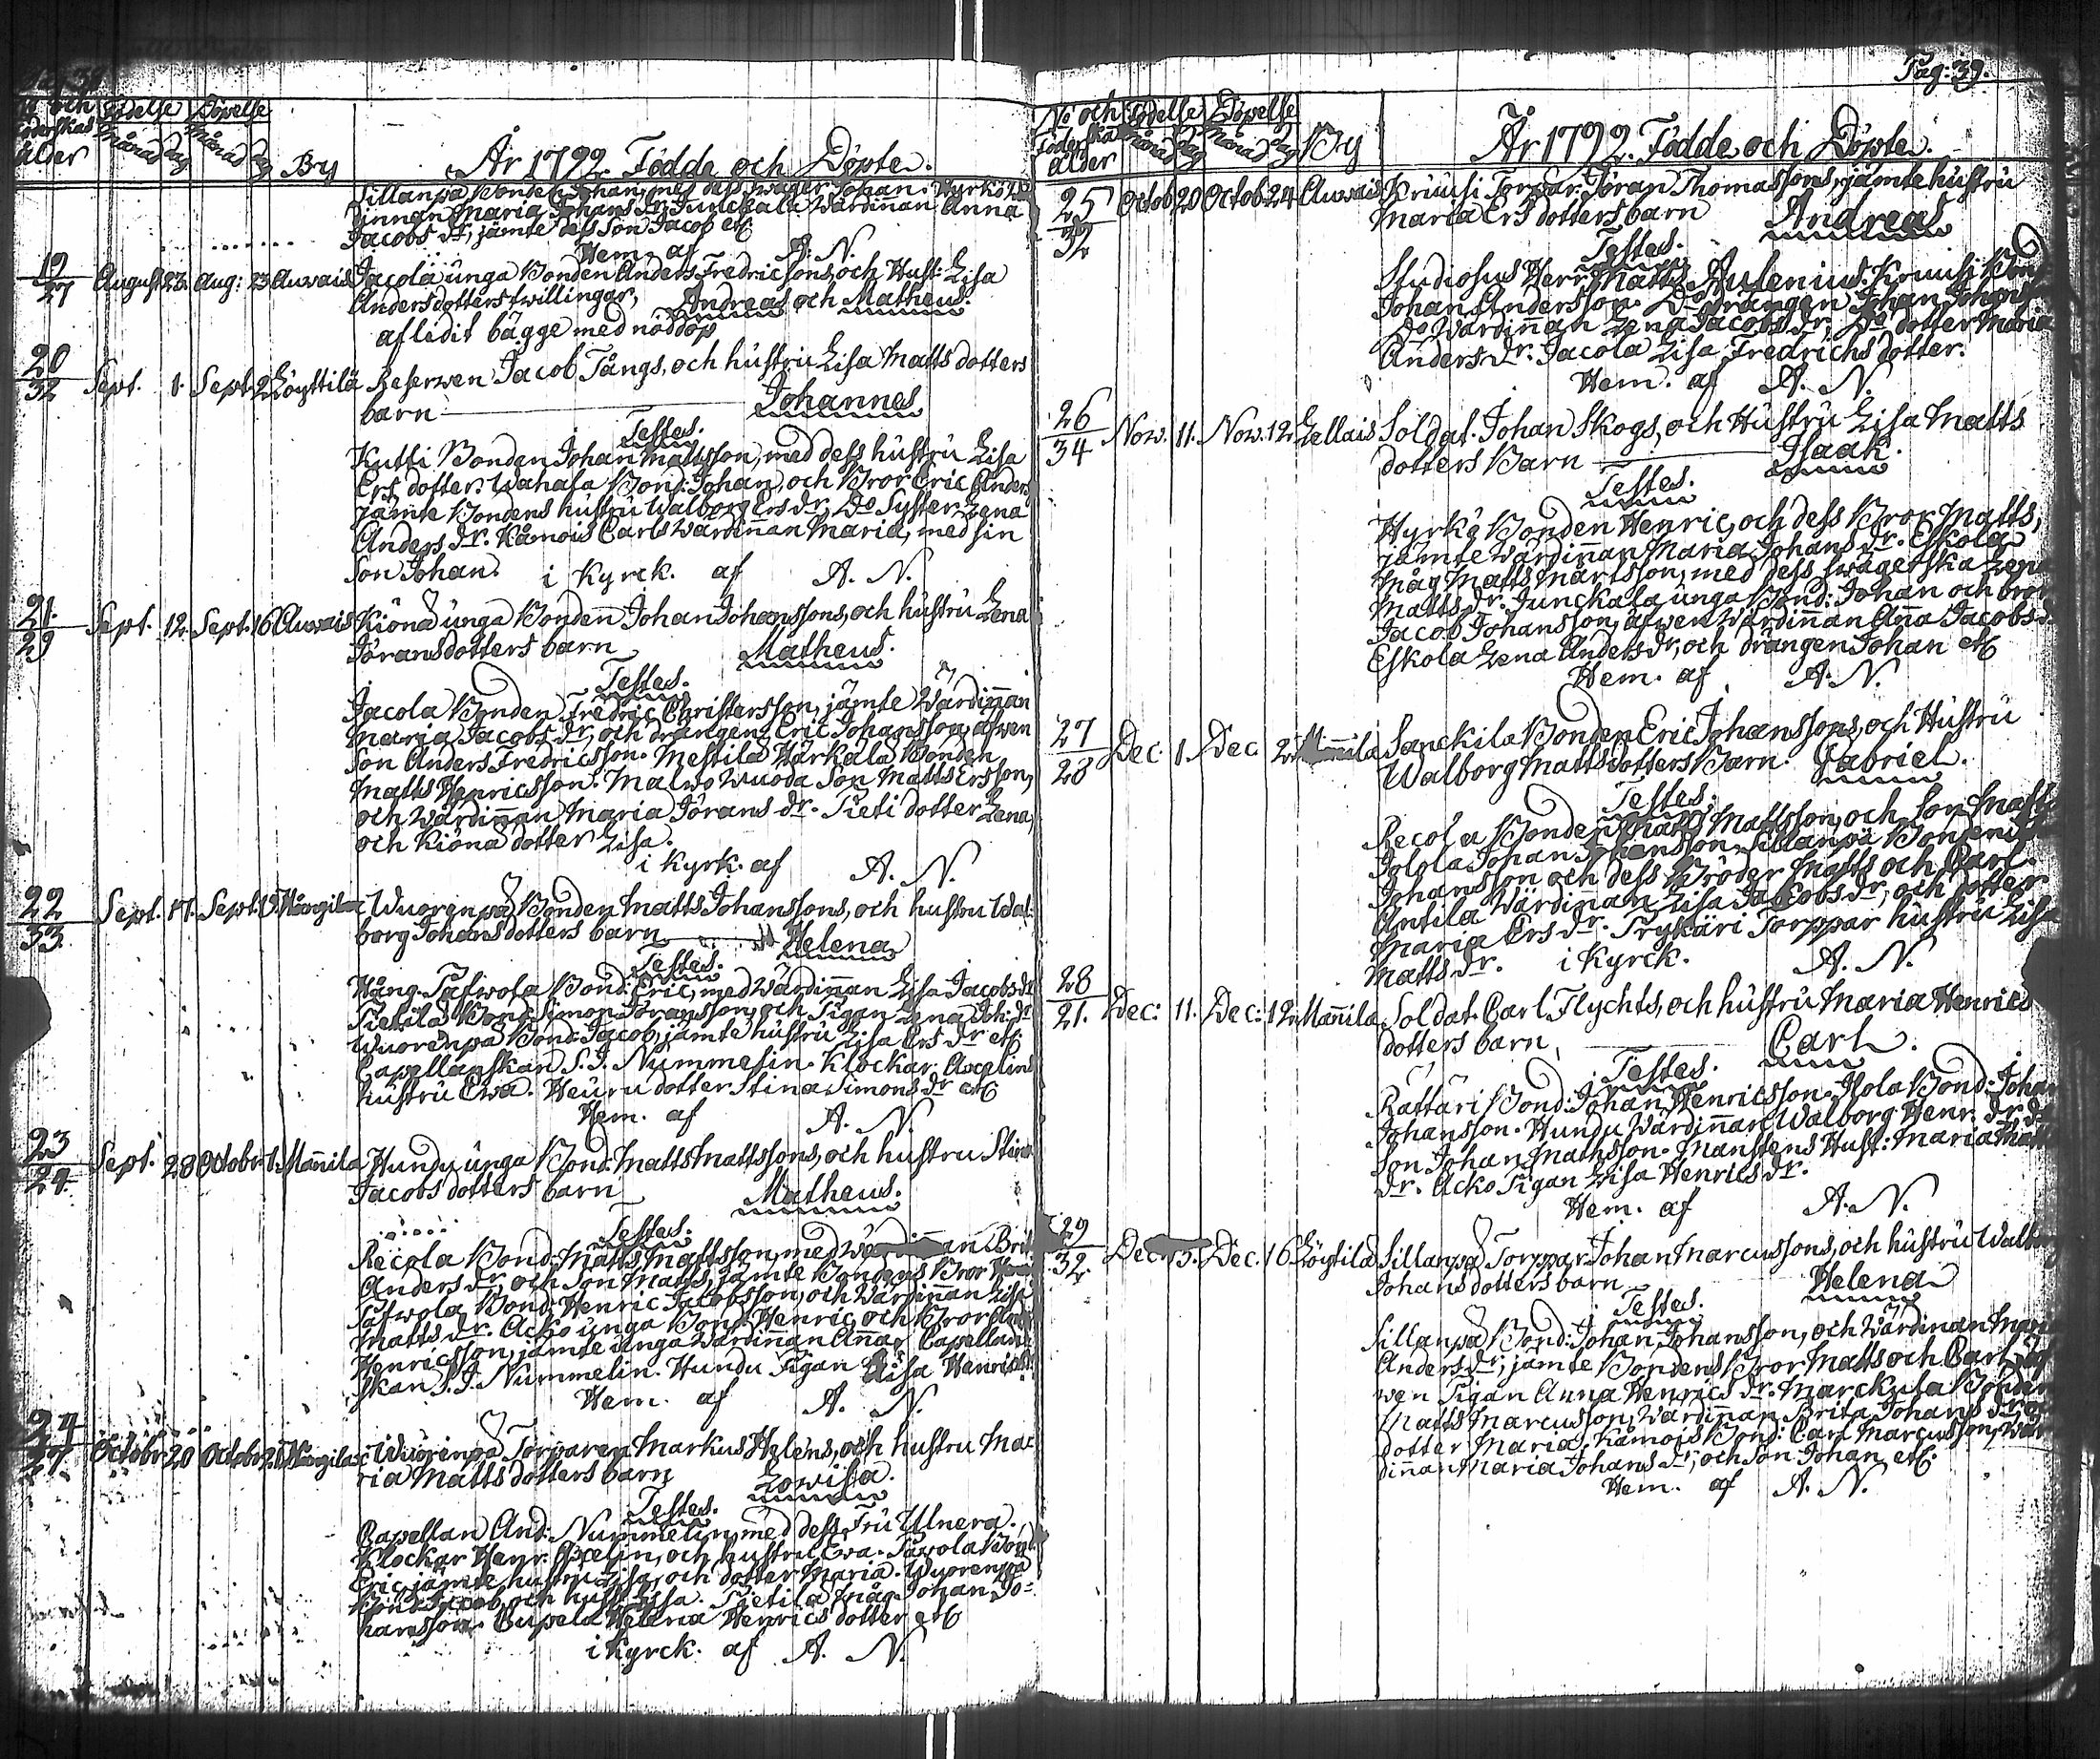 Pag: 38
No och Föderskas ålder
Födelse Månad Dag
Döpelse Månad Dag
By
År 1792 Födde och Döpte.
Sillanpä Bonden Johan, med dess swåger Johan. Hyrkö Wär
dinnan Maria Johans Dr. Junckala Wärdinnan Anna
Jacobs Dr, jämte dess Son Jacob etc
Hem. af A. N.
19/27 August 23. Aug: 23 Auvais Jacola unga Bonden Anders Fredricsons, och Hust: Lisa
Andersdotters twillingar, Andreas och Matheus.
aflidit bägge med nöddop
20/32 Sept. 1. Sept. 2 Löyttilä Reserwen Jacob Tångs, och hustru Lisa Matts dotters
barn Johannes
Testes.
Kutti Bonden Johan Mattsson, med dess hustru Lisa
Ers dotter. Wahala Bond: Johan, och Bror Eric Anders
jämte Bondens hustru Walborg Ers dr, Do Syster Lena
Anders dr. Kåmois Carls Wärdinnan Maria, med sin
Son Johan. i Kyrck. af A. N.
21./29 Sept. 12. Sept. 16 Auvais Kiönä unga Bonden Johan Johanssons, och hustru Lena
Jöransdotters barn Matheus.
Testes.
Jacola Bonden Fredric Christersson, jämte Wärdinnan
Maria Jacobs dr, och drängen Eric Johansson, äfwen
Son Anders Fredricsson. Mestilä Härkälä Bonden
Matts Henricsson. Malwo Wuoda Son Matts Ersson,
och Wärdinnan Maria Jörans dr. Pieti dotter Lena,
och Kiönä dotter Lisa.
i Kyrk. af A. N.
22/33 Sept. 17. Sept. Wuorenpä Bonden Matts Johanssons, och hustru Wal-
borg Johansdotters barn Helena
Testes.
Wång. Tafwola Bond: Eric, med Wärdinnan Lisa Jacobs dr
Pietilä Bond: Simon Jöransson, och Pigan Lena Joh: dr
Wuorenpä Bond: Jacob, jämte hustru Lisa Ers dr etc.
Capellanskan S. J. Nummelin. Klockar Axelins
hustru Ewa. Heuru dotter Stina Simons dr etc
Hem. af A. N.
23/24. Sept. 28 Octobr 1. Mannila Hundu unga Bond: Matts Mattssons, och hustru Stina
Jacobs dotters barn Matheus.
Testes.
Recola Bond: Matts Mattsson, med Wärdinnan Brit
Anders dr, och Son Matts, jämte Bondens Bror
Safwola Bond: Henric Jacobsson, och Wärdinnan Lisa
Matts dr. Acko unga Bond: Henric, och Bror
Henricsson, jämte unga Wärdinnan Anna. Capellans
skan S. J. Nummelin. Hundu Pigan Lisa Henrics dr.
Hem. af A. N.
24 Octobr 20 Octobr Wuorenpä Torparen Markus Helens, och hustru Ma-
ria Matts dotters barn Lowisa.
Testes.
Capellan And: Nummelin, med dess Fru Ulnera.
Klockar Henr: Axelin, och hustru Ewa. Tawola Bond
Eric, jämte hustru Lisa, och dotter Maria. Wuorenpä
Bond: Jacob, och hust: Lisa. Pietilä Måg Johan Jo-
hansson. Cupela Helena Henrics dotter etc
i Kyrck. af A. N.
Pag: 39.
No och Föderskas ålder
Födelse Månad Dag
Döpelse Månad Dag
By
År 1792. Födde och Döpte.
25/32 Octob 20 Octob 24 Auvais Kriuusi Torpar. Jöran Thomassons, jämte hustru
Maria Ers dotters barn Andreas
Testes.
Studiosus Herr Matts Aulenius. Kruusi Bond
Johan Andersson. Do drängen Johan Johans
Do Wärdinnan Lena Jacobs dr, Do dotter Maria
Anders dr. Jacola Lisa Fredrichs dotter.
Hem. af A. N.
26/34 Nov. 11. Nov. 12 Lellais Soldat. Johan Skogs, och Hustru Lisa Matts
dotters Barn Isaak.
Testes.
Hyrkö Bonden Henric, och dess Bror Matts,
jämte Wärdinnan Maria Johans dr. Eskola
Måg Matts Mårtsson, med dess swägerska Lena
Matts dr. Junckala unga Bond: Johan och bror
Jacob Johansson, äfwen Wärdinnan Anna Jacobs d.
Eskola Lena Anders dr, och drängen Johan etc
Hem. af A. N.
27/28 Dec. 1. Dec 2 Mannila Sanckila Bonden Eric Johanssons, och Hustru
Walborg Mattsdotters Barn. Gabriel.
Testes.
Recola Bonden Matts Mattsson, och Son Matts
Johan Johansson. Sillanpä Bonden
Johansson och dess Bröder Matts och Carl.
Antila Wärdinan Lisa Jacobs dr, och dotter
Maria Ers dr. Trykäri Torppar hustru Lisa
Matts dr. i Kyrck. A. N.
28/21. Dec: 11. Dec: 12 Mannila Soldat. Carl Flychts, och hustru Maria Henrics
dotters barn, Carl.
Testes.
Rättäri Bond: Johan Henricsson. Isola Bond: Johan
Johansson. Hundu Wärdinnan Walborg Henr. dr
Son Johan Mathsson. Manstens Hust: Maria Matt
dr. Acko Pigan Lisa Henrics dr.
Hem. af A. N.
29/32. Dec. 15. Dec. 16 Löytilä Sillanpä Torppar Johan Marcussons, och hustru Walb
Johans dotters barn Helena
Testes.
Sillanpä Bond: Johan Johansson, och Wärdinan Mari
Anders dr, jämte Bondens Bror Matts och Carl, äf
wen Pigan Anna Henrics dr. Marckula Bonden
Matts Marcusson, Wärdinnan Brita Johans dr
dotter Maria. Kåmois Bond: Carl Marcusson, Wär
dinnan Maria Johans dr, och Son Johan etc.
Hem. af A. N.